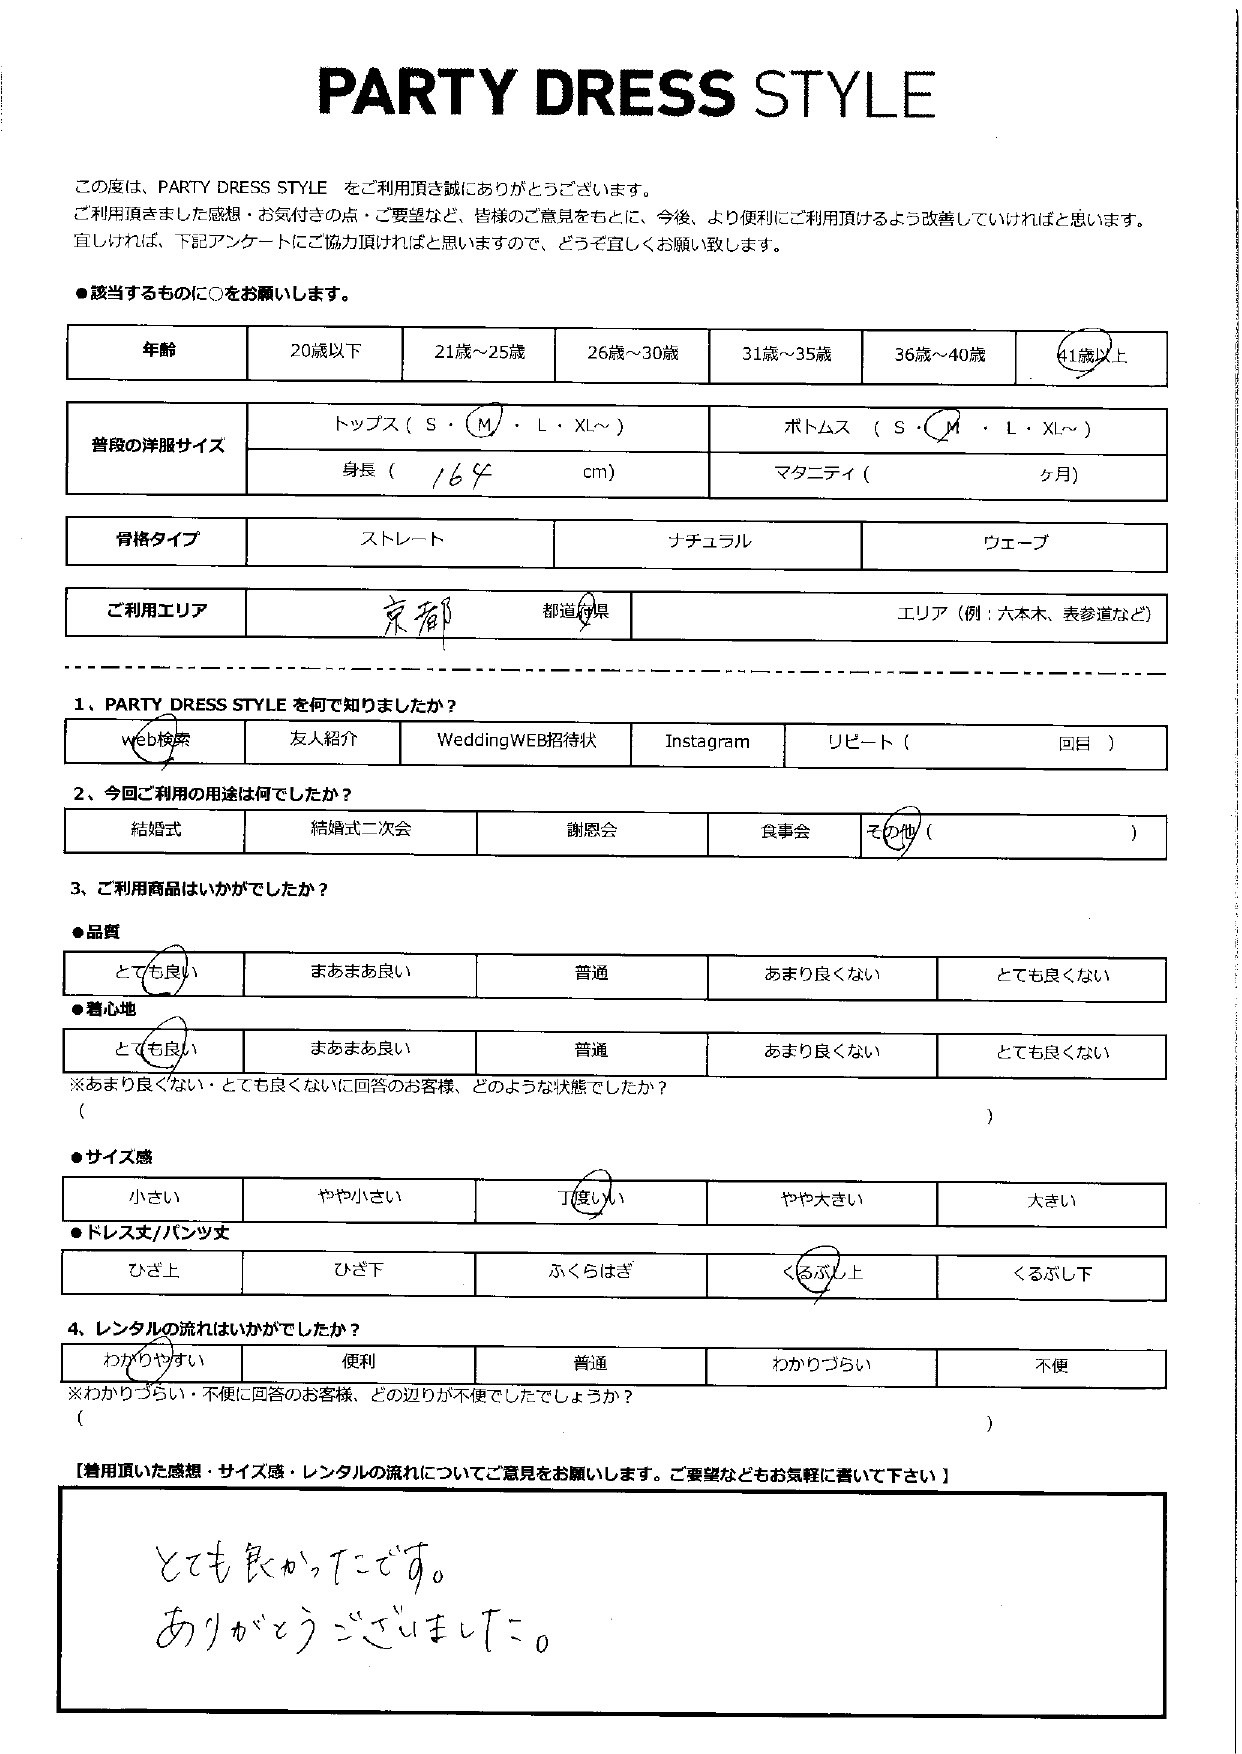 PARTY DRESS STYLE
この度は、PARTY DRESS STYLE をご利用頂き誠にありがとうございます。
ご利用頂きました感想・お気付きの点・ご要望など、皆様のご意見をもとに、今後、より便利にご利用頂けるよう改善していければと思います。
宜しければ、下記アンケートにご協力頂ければと思いますので、どうぞ宜しくお願い致します。
●該当するものに○をお願いします。
年齢 20歳以下 21歳～25歳 26歳～30歳 31歳～35歳 36歳～40歳 41歳以上
普段の洋服サイズ トップス ( S ・ M ・ L ・ XL～ ) ボトムス ( S ・ M ・ L ・ XL～ )
身長 ( 164 cm) マタニティ ( ヶ月)
骨格タイプ ストレート ナチュラル ウェーブ
ご利用エリア 京都 都道府県 エリア（例：六本木、表参道など）
1、PARTY DRESS STYLE を何で知りましたか？
web検索 友人紹介 WeddingWEB招待状 Instagram リピート ( 回目 )
2、今回ご利用の用途は何でしたか？
結婚式 結婚式二次会 謝恩会 食事会 その他 ( )
3、ご利用商品はいかがでしたか？
●品質
とても良い まあまあ良い 普通 あまり良くない とても良くない
●着心地
とても良い まあまあ良い 普通 あまり良くない とても良くない
※あまり良くない・とても良くないに回答のお客様、どのような状態でしたか？
( )
●サイズ感
小さい やや小さい 丁度いい やや大きい 大きい
●ドレス丈/パンツ丈
ひざ上 ひざ下 ふくらはぎ くるぶし上 くるぶし下
4、レンタルの流れはいかがでしたか？
わかりやすい 便利 普通 わかりづらい 不便
※わかりづらい・不便に回答のお客様、どの辺りが不便でしたでしょうか？
( )
【着用頂いた感想・サイズ感・レンタルの流れについてご意見をお願いします。ご要望などもお気軽に書いて下さい】
とても良かったです。
ありがとうございました。